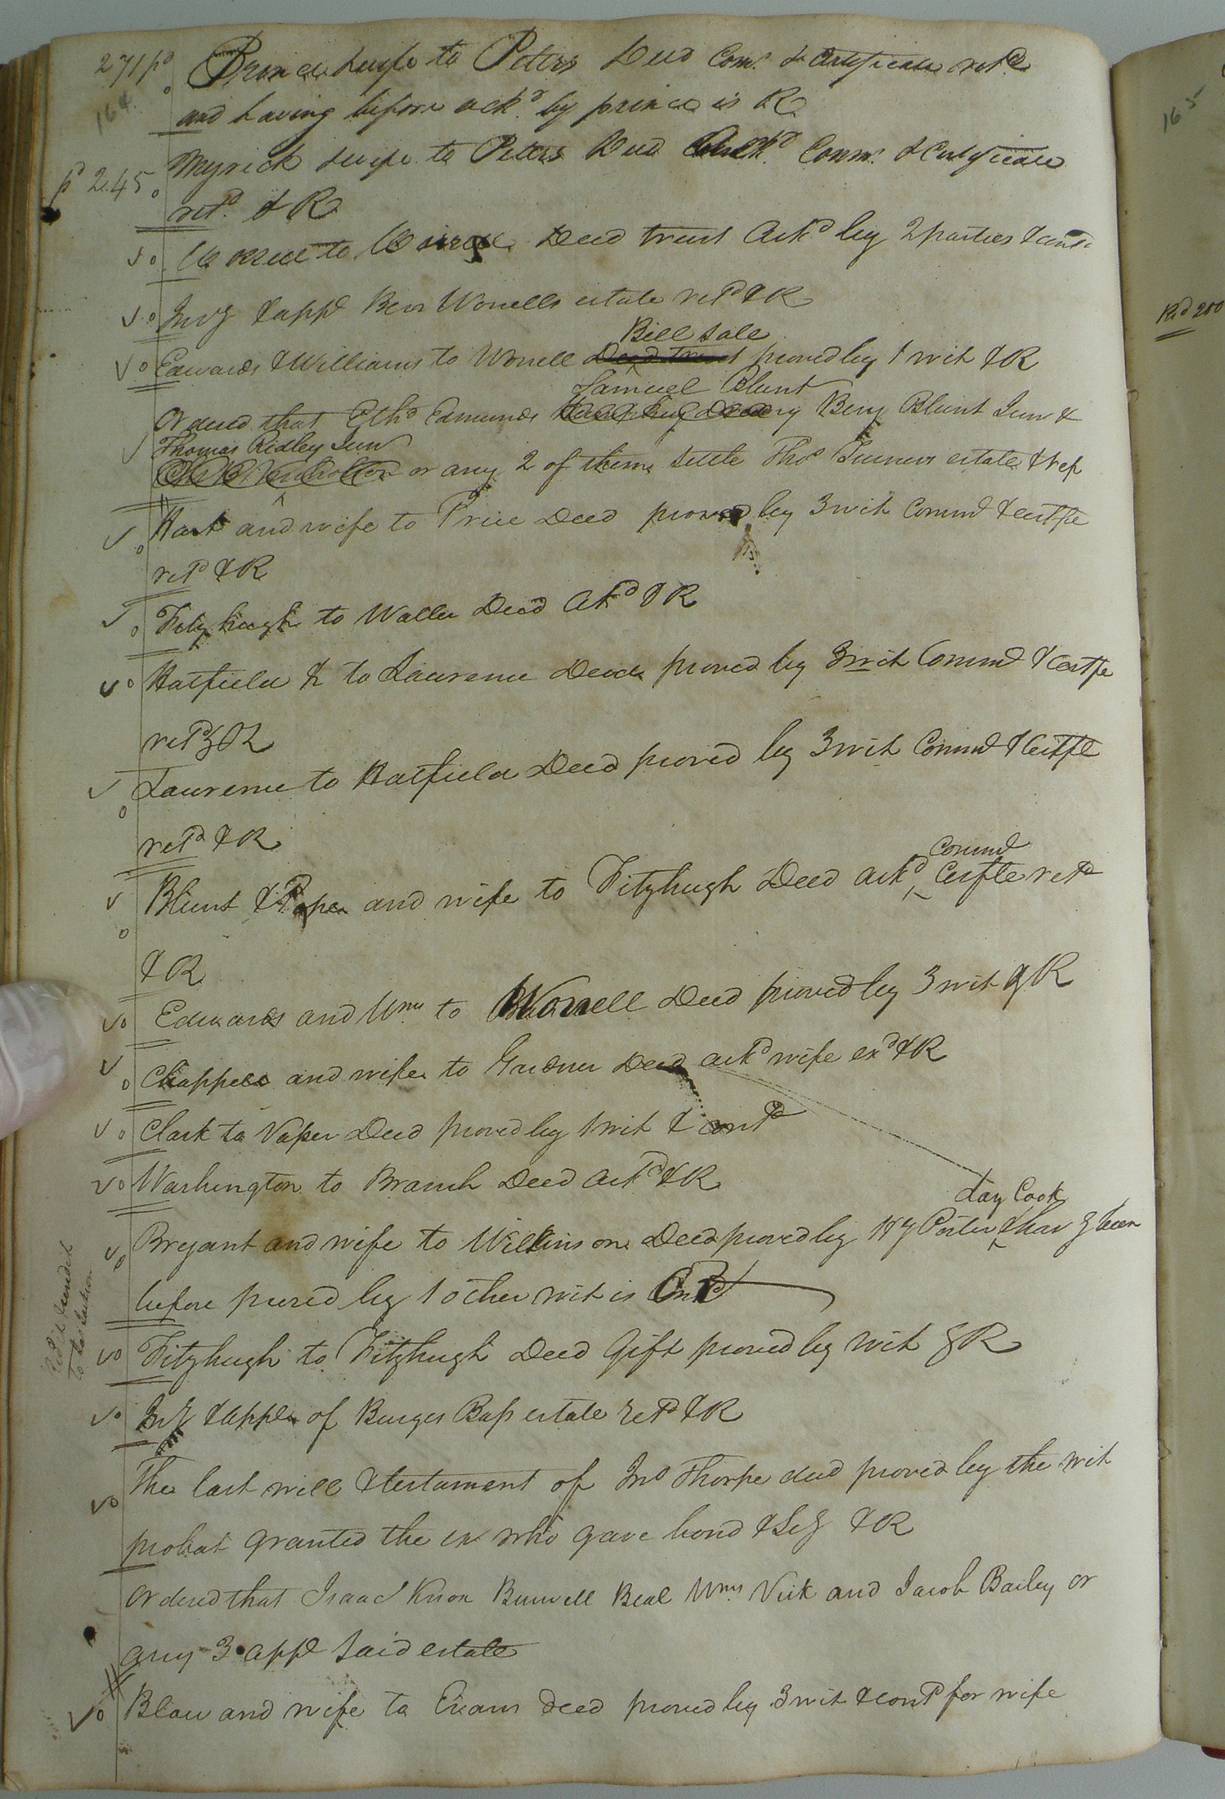 271 pd Prince & wife to Peters Deed Com. & Certificate retd
164
and having before ackd by prince is R
Myrick & wife to Peters Deed Comn. & Certificate
pd 2.45
retd. & R
to Deed trust Ackd by 2 parties &
Invy & appt Ben Worrells estate retd & R
Bill Sale
Edwards & Williams to Worrell Deed trust proved by 1 wit & R
Samuel Blunt
Ordered that Ethd Edmunds Benj Blunt Junr &
Thomas Ridley Junr
or any 2 of them settle Thos Turners estate & rep
and wife to Price Deed proved by 3 wit Commd & certfe
retd & R
Fitzhugh to Waller Deed Ackd & R
Hatfield & to Lawrence Deed proved by 3 wit Commd & Certfe
retd & R
Lawrence to Hatfield Deed proved by 3 wit Commd & Certfe
retd & R
Commd
Blunt & Pope and wife to Fitzhugh Deed ackd Certfe retd
& R
Edwards and Wms to Worrell Deed proved by 3 wit & R
Chappell and wife to Deed ackd wife exd & R
Clark to Vaper Deed proved by 1 wit & contd
Washington to Branch Deed Ackd & R
Lay Cook
Bryant and wife to Wilkinson Deed proved by Porter & havg been
before proved by 1 other wit is Contd
Fitzhugh to Fitzhugh Deed Gift proved by wit & R
Invy & appt of Burges Bass estate retd & R
The last will & testament of Jno Thorpe decd proved by the wit
probat granted the ex who gave bond & Sey & R
Ordered that Isaac Burwell Beal Wm. Vick and Jacob Bailey or
any 3 appt said estate
Blow and wife to Evans Deed proved by 3 wit & contd for wife
165
Red 200